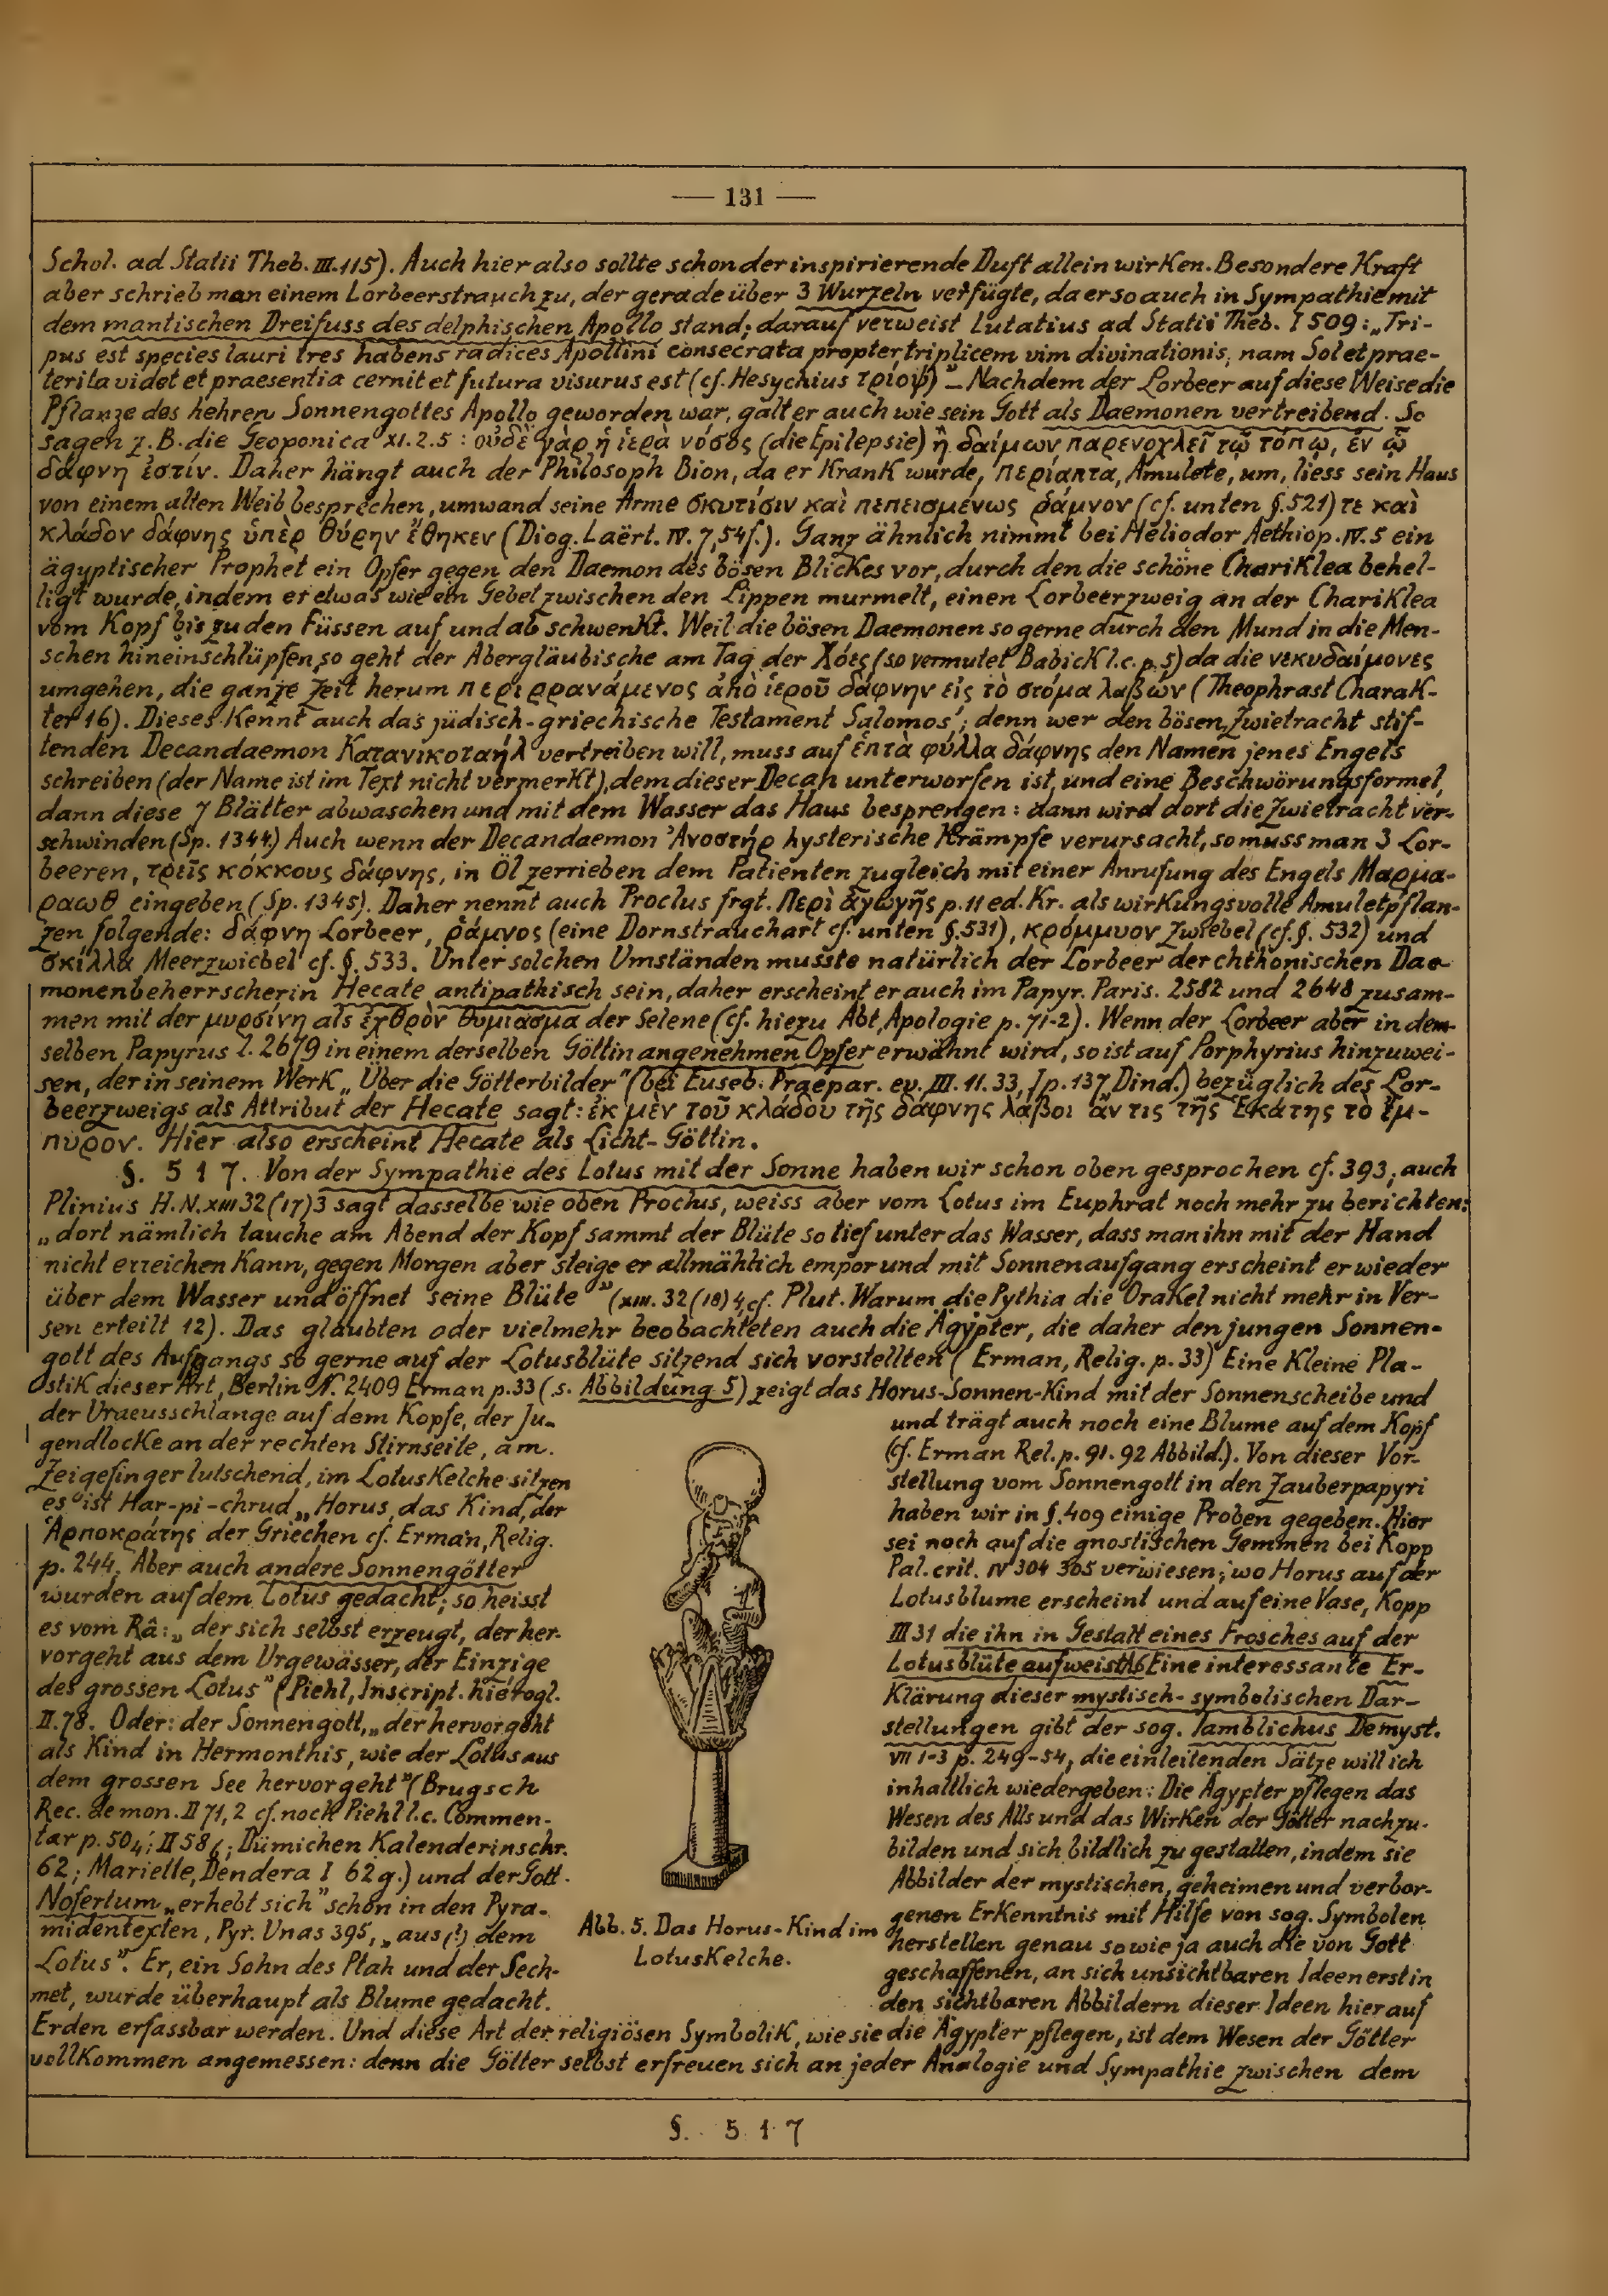 — 131 —
Schol. ad Statii Theb. III. 115). Auch hier also sollte schon der inspirierende Duft allein wirken. Besondere Kraft
aber schrieb man einem Lorbeerstrauch zu, der gerade über 3 Wurzeln verfügte, da er so auch in Sympathie mit
dem mantischen Dreifuss des delphischen Apollo stand; darauf verweist Lutatius ad Statii Theb. I 509: „Tri-
pus est species lauri tres habens radices Apollini consecrata propter triplicem vim divinationis, nam Sol et prae-
terita videt et praesentia cernit et futura visurus est (cf. Hesychius τρίοψ)” – Nachdem der Lorbeer auf diese Weise die
Pflanze des hehren Sonnengottes Apollo geworden war, galt er auch wie sein Gott als Daemonen vertreibend. So
sagen z. B. die Geoponica XI. 2. 5: οὐδὲ γὰρ ἡ ἱερὰ νόσος (die Epilepsie) ἢ δαίμων παρενοχλεῖ τῷ τόπῳ, ἐν ᾧ
δάφνη ἐστίν. Daher hängt auch der Philosoph Bion, da er krank wurde, περίαπτα, Amulete, um, liess sein Haus
von einem alten Weib besprechen, umwand seine Arme σκυτίσιν καὶ πεπεισμένως ῥάμνον (cf. unten §. 521) τε καὶ
κλάδον δάφνης ὑπὲρ θύρην ἔθηκεν (Diog. Laërt. IV. 7, 54f.). Ganz ähnlich nimmt bei Heliodor Aethiop. IV. 5 ein
ägyptischer Prophet ein Opfer gegen den Daemon des bösen Blickes vor, durch den die schöne Chariklea behel-
ligt wurde, indem er etwas wie ein Gebet zwischen den Lippen murmelt, einen Lorbeerzweig an der Chariklea
vom Kopf bis zu den Füssen auf und ab schwenkt. Weil die bösen Daemonen so gerne durch den Mund in die Men-
schen hineinschlüpfen, so geht der Abergläubische am Tag der Χόες (so vermutet Babick l. c. p. 5) da die νεκυδαίμονες
umgehen, die ganze Zeit herum περιρρανάμενος ἀπὸ ἱεροῦ δάφνην εἰς τὸ στόμα λαβών (Theophrast Charak-
ter 16). Dieses kennt auch das jüdisch-griechische Testament Salomos'; denn wer den bösen, Zwietracht stif-
tenden Decandaemon Κατανικοταήλ vertreiben will, muss auf ἑπτὰ φύλλα δάφνης den Namen jenes Engels
schreiben (der Name ist im Text nicht vermerkt), dem dieser Decan unterworfen ist, und eine Beschwörungsformel,
dann diese 7 Blätter abwaschen und mit dem Wasser das Haus besprengen: dann wird dort die Zwietracht ver-
schwinden (Sp. 1344.) Auch wenn der Decandaemon Ἀνοστήρ hysterische Krämpfe verursacht, so muss man 3 Lor-
beeren, τρεῖς κόκκους δάφνης, in Öl zerrieben dem Patienten zugleich mit einer Anrufung des Engels Μαρμα-
ραωθ eingeben (Sp. 1345). Daher nennt auch Proclus frgt. Περὶ ἀγωγῆς p. 11 ed. Kr. als wirkungsvolle Amuletpflan-
zen folgende: δάφνη Lorbeer, ῥάμνος (eine Dornstrauchart cf. unten §. 531), κρόμμυον Zwiebel (cf. §. 532) und
σκίλλα Meerzwiebel cf. §. 533. Unter solchen Umständen musste natürlich der Lorbeer der chthonischen Dae-
monenbeherrscherin Hecate antipathisch sein, daher erscheint er auch im Papyr. Paris. 2582 und 2648 zusam-
men mit der μυρσίνη als ἐχθρὸν θυμίασμα der Selene (cf. hiezu Abt, Apologie p. 71-2). Wenn der Lorbeer aber in dem-
selben Papyrus l. 2679 in einem derselben Göttin angenehmen Opfer erwähnt wird, so ist auf Porphyrius hinzuwei-
sen, der in seinem Werk „Über die Götterbilder” (bei Euseb. Praepar. ev. III. 11. 33, I p. 137 Dind.) bezüglich des Lor-
beerzweigs als Attribut der Hecate sagt: ἐκ μὲν τοῦ κλάδου τῆς δάφνης λάβοι ἄν τις τῆς Ἑκάτης τὸ ἔμ-
πυρον. Hier also erscheint Hecate als Licht-Göttin.
§. 517. Von der Sympathie des Lotus mit der Sonne haben wir schon oben gesprochen cf. 393; auch
Plinius H. N. XIII 32 (17) 3 sagt dasselbe wie oben Proclus, weiss aber vom Lotus im Euphrat noch mehr zu berichten:
„dort nämlich tauche am Abend der Kopf sammt der Blüte so tief unter das Wasser, dass man ihn mit der Hand
nicht erreichen kann, gegen Morgen aber steige er allmählich empor und mit Sonnenaufgang erscheint er wieder
über dem Wasser und öffnet seine Blüte” (XIII. 32 (18) 4, cf. Plut. Warum die Pythia die Orakel nicht mehr in Ver-
sen erteilt 12). Das glaubten oder vielmehr beobachteten auch die Ägypter, die daher den jungen Sonnen-
gott des Aufgangs so gerne auf der Lotusblüte sitzend sich vorstellten (Erman, Relig. p. 33) Eine kleine Pla-
stik dieser Art, Berlin N. 2409 Erman p. 33 (s. Abbildung 5) zeigt das Horus-Sonnen-Kind mit der Sonnenscheibe und
der Uraeusschlange auf dem Kopfe, der Ju-
gendlocke an der rechten Stirnseite, am
Zeigefinger lutschend, im Lotuskelche sitzen
es ist Har-pi-chrud „Horus, das Kind, der
Ἁρποκράτης der Griechen cf. Erman, Relig.
p. 244. Aber auch andere Sonnengötter
wurden auf dem Lotus gedacht; so heisst
es vom Râ: „der sich selbst erzeugt, der her-
vorgeht aus dem Urgewässer, der Einzige
des grossen Lotus” (Piehl, Inscript. hierogl.
II. 78. Oder: der Sonnengott, „der hervorgeht
als Kind in Hermonthis, wie der Lotus aus
dem grossen See hervorgeht” (Brugsch
Rec. de mon. II 71, 2 cf. noch Piehl l. c. Commen-
tar p. 504; II 586; Dümichen Kalenderinschr.
62; Mariette, Dendera I 62 g.) und der Gott
Nofertum „erhebt sich” schon in den Pyra-
midentexten, Pyr. Unas 395, „aus (!) dem
Lotus”. Er, ein Sohn des Ptah und der Sech-
met, wurde überhaupt als Blume gedacht.
Abb. 5. Das Horus-Kind im
Lotuskelche.
und trägt auch noch eine Blume auf dem Kopf
(cf. Erman Rel. p. 91. 92 Abbild.). Von dieser Vor-
stellung vom Sonnengott in den Zauberpapyri
haben wir in §. 409 einige Proben gegeben. Hier
sei noch auf die gnostischen Gemmen bei Kopp
Pal. crit. IV 304 305 verwiesen; wo Horus auf der
Lotusblume erscheint und auf eine Vase, Kopp
III 31 die ihn in Gestalt eines Frosches auf der
Lotusblüte aufweist. Eine interessante Er-
klärung dieser mystisch-symbolischen Dar-
stellungen gibt der sog. Iamblichus De myst.
VII 1-3 p. 249-54, die einleitenden Sätze will ich
inhaltlich wiedergeben: Die Ägypter pflegen das
Wesen des Alls und das Wirken der Götter nachzu-
bilden und sich bildlich zu gestalten, indem sie
Abbilder der mystischen, geheimen und verbor-
genen Erkenntnis mit Hilfe von sog. Symbolen
herstellen genau so wie ja auch die von Gott
geschaffenen, an sich unsichtbaren Ideen erst in
den sichtbaren Abbildern dieser Ideen hier auf
Erden erfassbar werden. Und diese Art der religiösen Symbolik, wie sie die Ägypter pflegen, ist dem Wesen der Götter
vollkommen angemessen: denn die Götter selbst erfreuen sich an jeder Analogie und Sympathie zwischen dem
§. 517